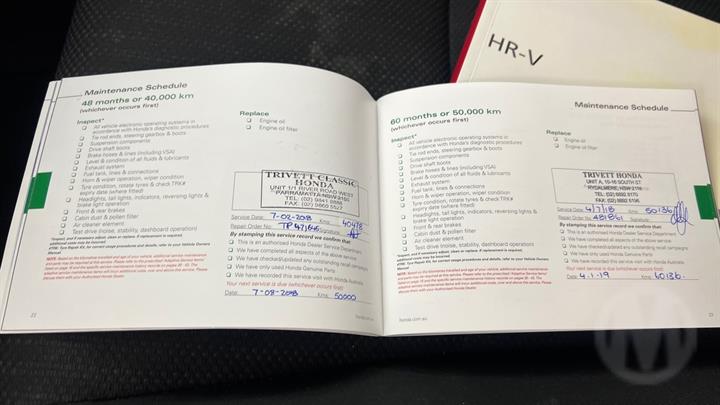 HR-V
Maintenance Schedule
48 months or 40,000 km
(whichever occurs first)
Inspect*
All vehicle electronic operating systems in
accordance with Honda's diagnostic procedures
Tie rod ends, steering gearbox & boots
Suspension components
Drive shaft boots
Brake hoses & lines (including VSA)
Level & condition of all fluids & lubricants
Exhaust system
Fuel tank, lines & connections
Horn & wiper operation, wiper condition
Tyre condition, rotate tyres & check TRK#
expiry date (where fitted)
Headlights, tail lights, indicators, reversing lights &
brake light operation
Front & rear brakes
Cabin dust & pollen filter
Air cleaner element
Test drive (noise, stability, dashboard operation)
*Inspect, and if necessary adjust, clean or replace. If replacement is required,
additional costs may be incurred.
#TRK: Tyre Repair Kit, for correct usage procedures and details, refer to your Vehicle Owners
Manual
Replace
Engine oil
Engine oil filter
TRIVETT CLASSIC
HONDA
UNIT 1/1 RIVER ROAD WEST
PARRAMATTA NSW 2150
TEL: (02) 9841 8888
FAX: (02) 9860 5527
Service Date: 7-02-2018 Kms: 40478
Repair Order No: Signature:
By stamping this service record we confirm that
This is an authorised Honda Dealer Service Department
We have completed all aspects of the above service
We have checked/updated any outstanding recall
We have only used Honda Genuine Parts
We have recorded this service visit with Honda
Your next service is due (whichever occurs first)
Date: 7-08-2018 Kms: 50000
22
Maintenance Schedule
60 months or 50,000 km
(whichever occurs first)
Inspect*
All vehicle electronic operating systems in
accordance with Honda's diagnostic procedures
Tie rod ends, steering gearbox & boots
Suspension components
Drive shaft boots
Brake hoses & lines (including VSA)
Level & condition of all fluids & lubricants
Exhaust system
Fuel tank, lines & connections
Horn & wiper operation, wiper condition
Tyre condition, rotate tyres & check TRK#
expiry date (where fitted)
Headlights, tail lights, indicators, reversing lights &
brake light operation
Front & rear brakes
Cabin dust & pollen filter
Air cleaner element
Test drive (noise, stability, dashboard operation)
*Inspect, and if necessary adjust, clean or replace. If replacement is required,
additional costs may be incurred.
#TRK: Tyre Repair Kit, for correct usage procedures and details, refer to your Vehicle Owners
Manual
Replace
Engine oil
Engine oil filter
TRIVETT HONDA
UNIT A, 10-16 SOUTH ST
RYDALMERE NSW 2116
TEL: (02) 8892 5170
Service Date: 4/7/18 Kms: 50136
Repair Order No: 481861 Signature:
By stamping this service record we confirm that
This is an authorised Honda Dealer Service Department
We have completed all aspects of the above service
We have checked/updated any outstanding recall campaigns
We have only used Honda Genuine Parts
We have recorded this service visit with Honda Australia
Your next service is due (whichever occurs first)
Date: 4.1.19 Kms: 60136
honda.com.au
M